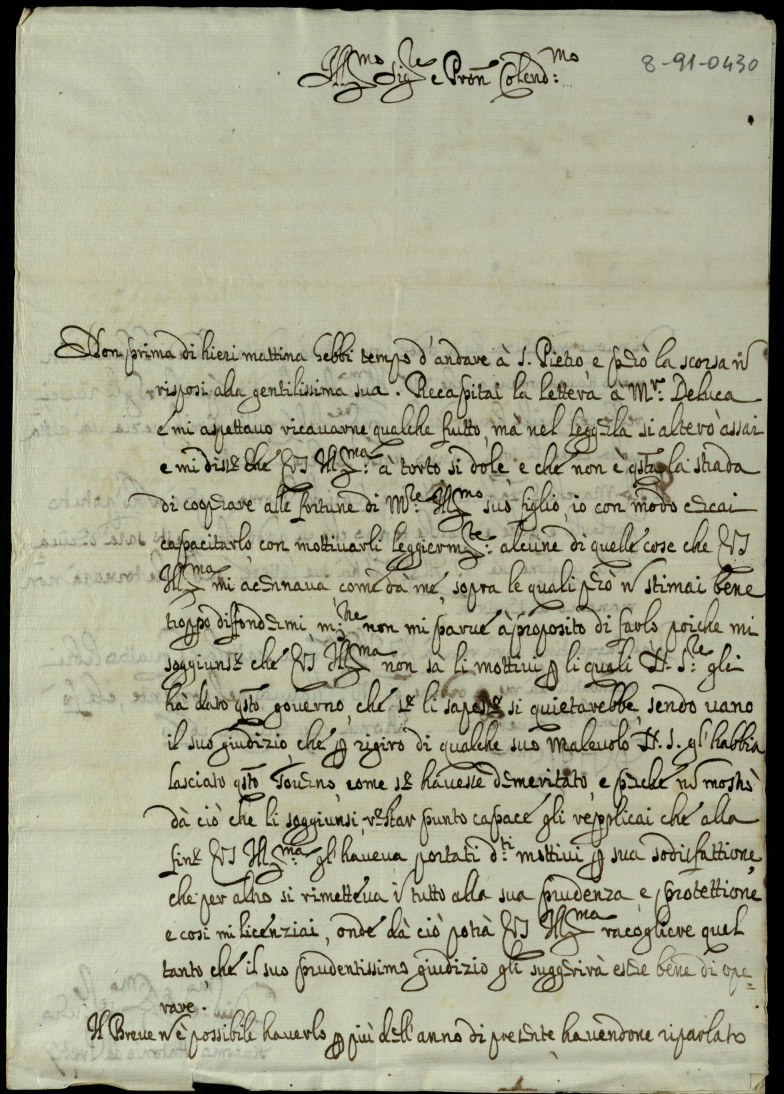 Ill.mo Sig.re e Pron Colend.mo
8-91-0430
Non prima di hieri mattina hebbi tempo d'andare à S. Pietro e però la scorsa ñ
risposi alla gentilissima sua. Recapitai la lettera à Mr. Deluca
e mi aspettavo ricavarne qualche frutto, mà nel leggerla si alterò assai
e mi disse che VS Ill.ma à torto si dole, e che non è qsta la strada
di cooperare alle fortune di M.re Ill.mo suo figlio, io con modo cercai
capacitarlo con mottivarli leggierm.te alcune di quelle cose che VS
Ill.ma mi acennava come dà me, sopra le quali però ñ stimai bene
troppo diffondermi non mi parve à proposito di farlo poiche mi
soggiunse che VS Ill.ma non sa li mottivi p li queli N. S.re gli
hà dato qsto governo, che se li sapesse si quietarebbe, sendo vano
il suo giudizio, che p rigiro di qualche suo malevolo N. S. gl'habbia
lasciato qsto Governo, come se havesse demeritato, e perche ñ mostrò
dà ciò che li soggiunsi, restar punto capace gli repplicai che alla
fine VS Ill.ma gl'haveva portati d.ti mottivi p sua sodisfattione,
che per altro si rimetteva i tutto alla sua prudenza e protettione,
e così mi licenziai, onde dà ciò potrà VS Ill.ma racogliere quel
tanto che il suo prudentissimo giudizio gli suggerirà essere bene di ope=
rare.
Il Breve ñ è possibile haverlo p più dell'anno di presente havendone riparlato